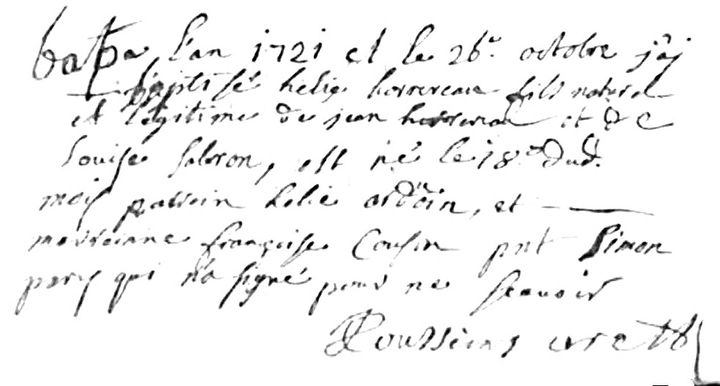 bapa, l'an 1721 et le 26.e octobre j'ay
baptisé helie horrereau fils naturel
et legitime de jean horrereau et de
Louise Sabron, est né le 18.e dud.
mois parrein helie ardoin, et
marreinne françoise Cousin pnt Simon
paris qui n'a signé pour ne scavoir
Poussineg curé